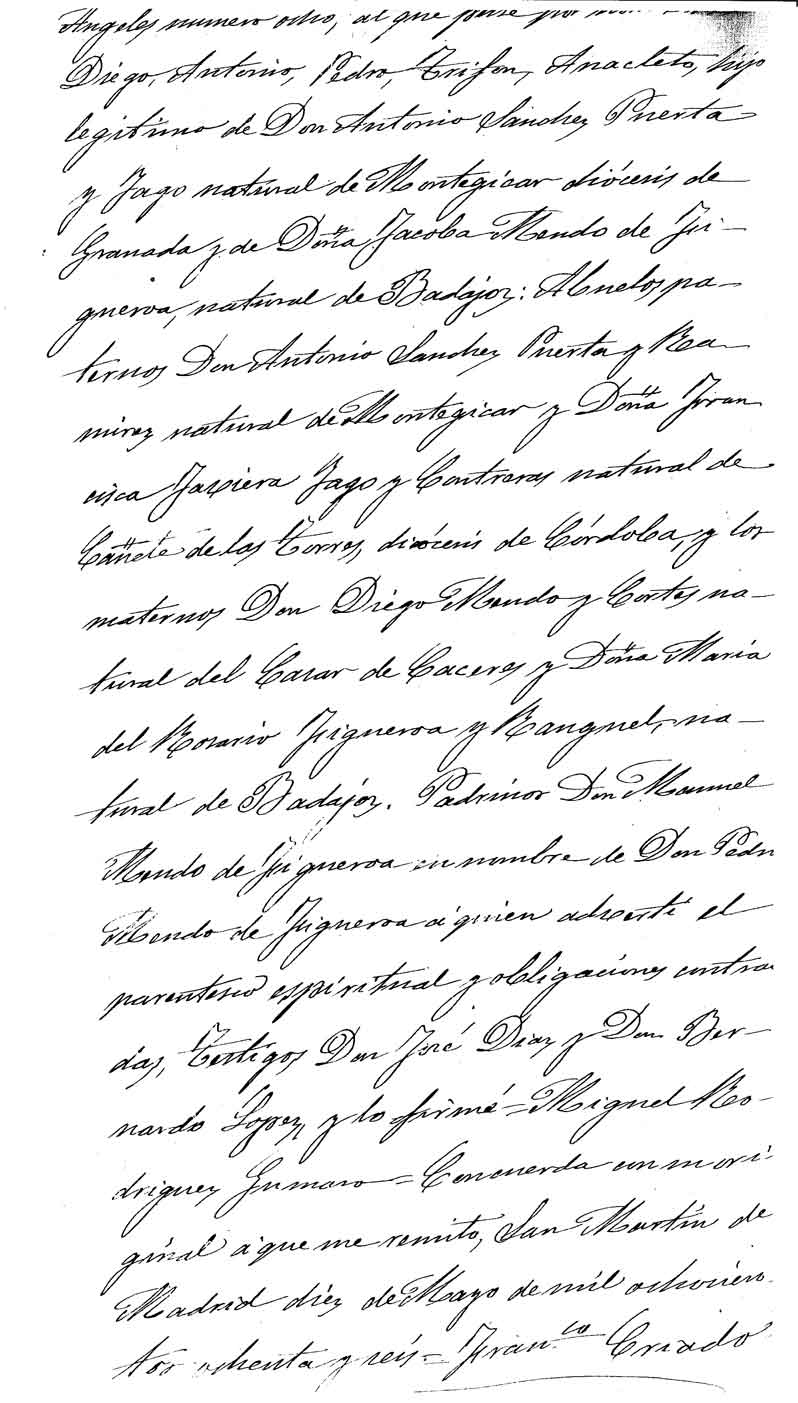 Angeles numero ocho, al que puse por
Diégo, Antonio, Pedro, Trifon, Anacleto, hijo
legitimo de Don Antonio Sanchez Puerta
y Jago natural de Montegicar diócesis de
Granada y de Doña Jacoba Mendo de Fi-
gueroa, natural de Badajoz: Abuelos pa-
ternos Don Antonio Sanchez Puerta y Ra-
mirez natural de Montegicar y Doña Fran
cisca Javiera Jago y Contreras natural de
Cañete de las Torres, diócesis de Córdoba, y los
maternos Don Diégo Mendo y Cortes na-
tural del Casar de Caceres y Doña Maria
del Rosario Figueroa y Ranguel, na-
tural de Badajóz. Padrinos Don Manuel
Mendo de Figueroa en nombre de Don Pedro
Mendo de Figueroa á quien adverti el
parentesco espiritual y obligaciones contrai
das, Testigos Don José Diaz y Don Ber-
nardo Lopez, y lo firmé = Miguel Ro-
driguez Gumaro = Concuerda con su ori-
ginal á que me remito, San Martin de
Madrid diez de Mayo de mil ochocien-
tos ochenta y seis = Fran.co Criado